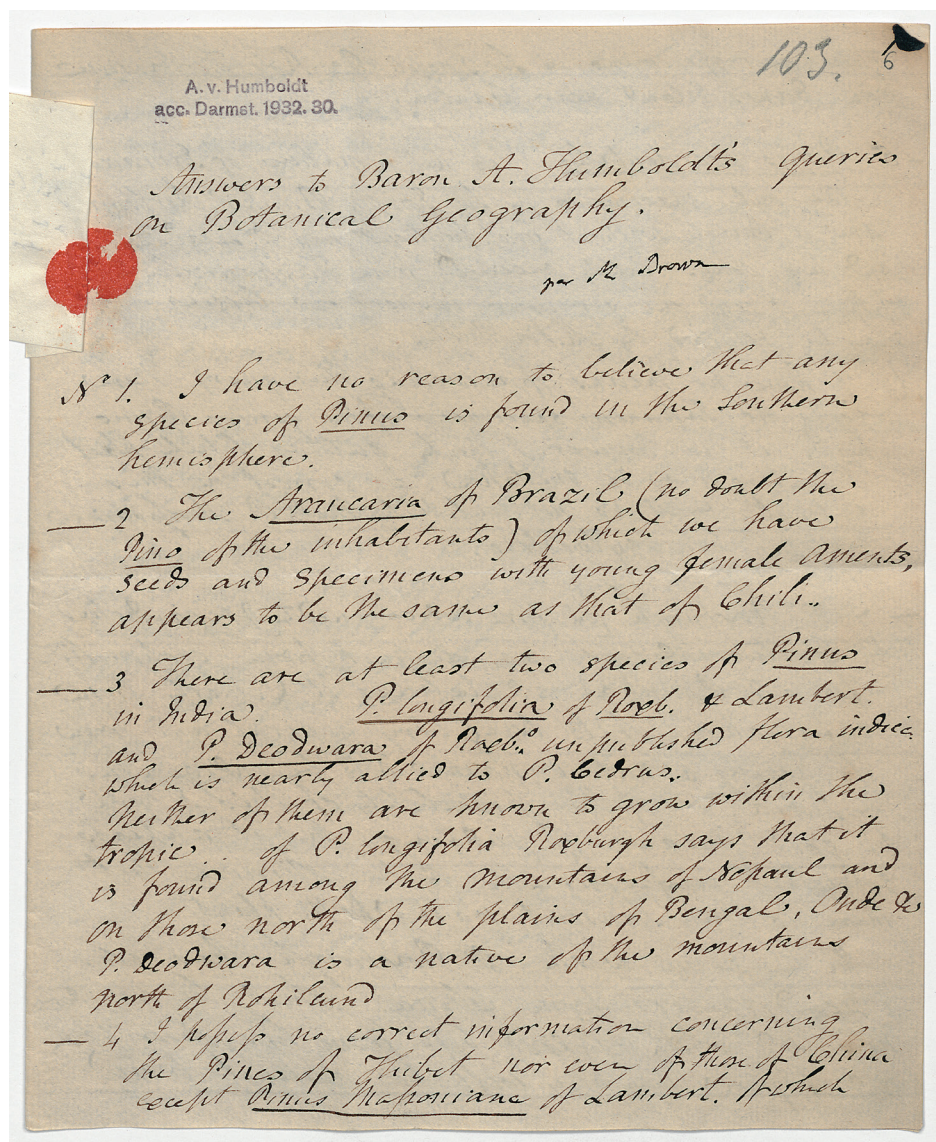 103.
6
A. v. Humboldt
acc. Darmst. 1932. 30.
Answers to Baron A. Humboldt's queries
on Botanical Geography.
par M Brown
No 1. I have no reason to believe that any
species of Pinus is found in the Southern
hemisphere.
— 2 The Araucaria of Brazil (no doubt the
Pino of the inhabitants) of which we have
seeds and specimens with young female aments,
appears to be the same as that of Chili..
— 3 There are at least two species of Pinus
in India. P. longifolia of Roxb. & Lambert.
and P. Deodwara of Roxb.s unpublished flora indica
which is nearly allied to P. Cedrus.
Neither of them are known to grow within the
tropic .. of P. longifolia Roxburgh says that it
is found among the mountains of Nepaul and
on those north of the plains of Bengal, Oude &c
P. deodwara is a native of the mountains
north of Rohilcund
— 4 I possess no correct information concerning
the Pines of Thibet nor even of those of China
except Pinus Massoniana of Lambert. of which